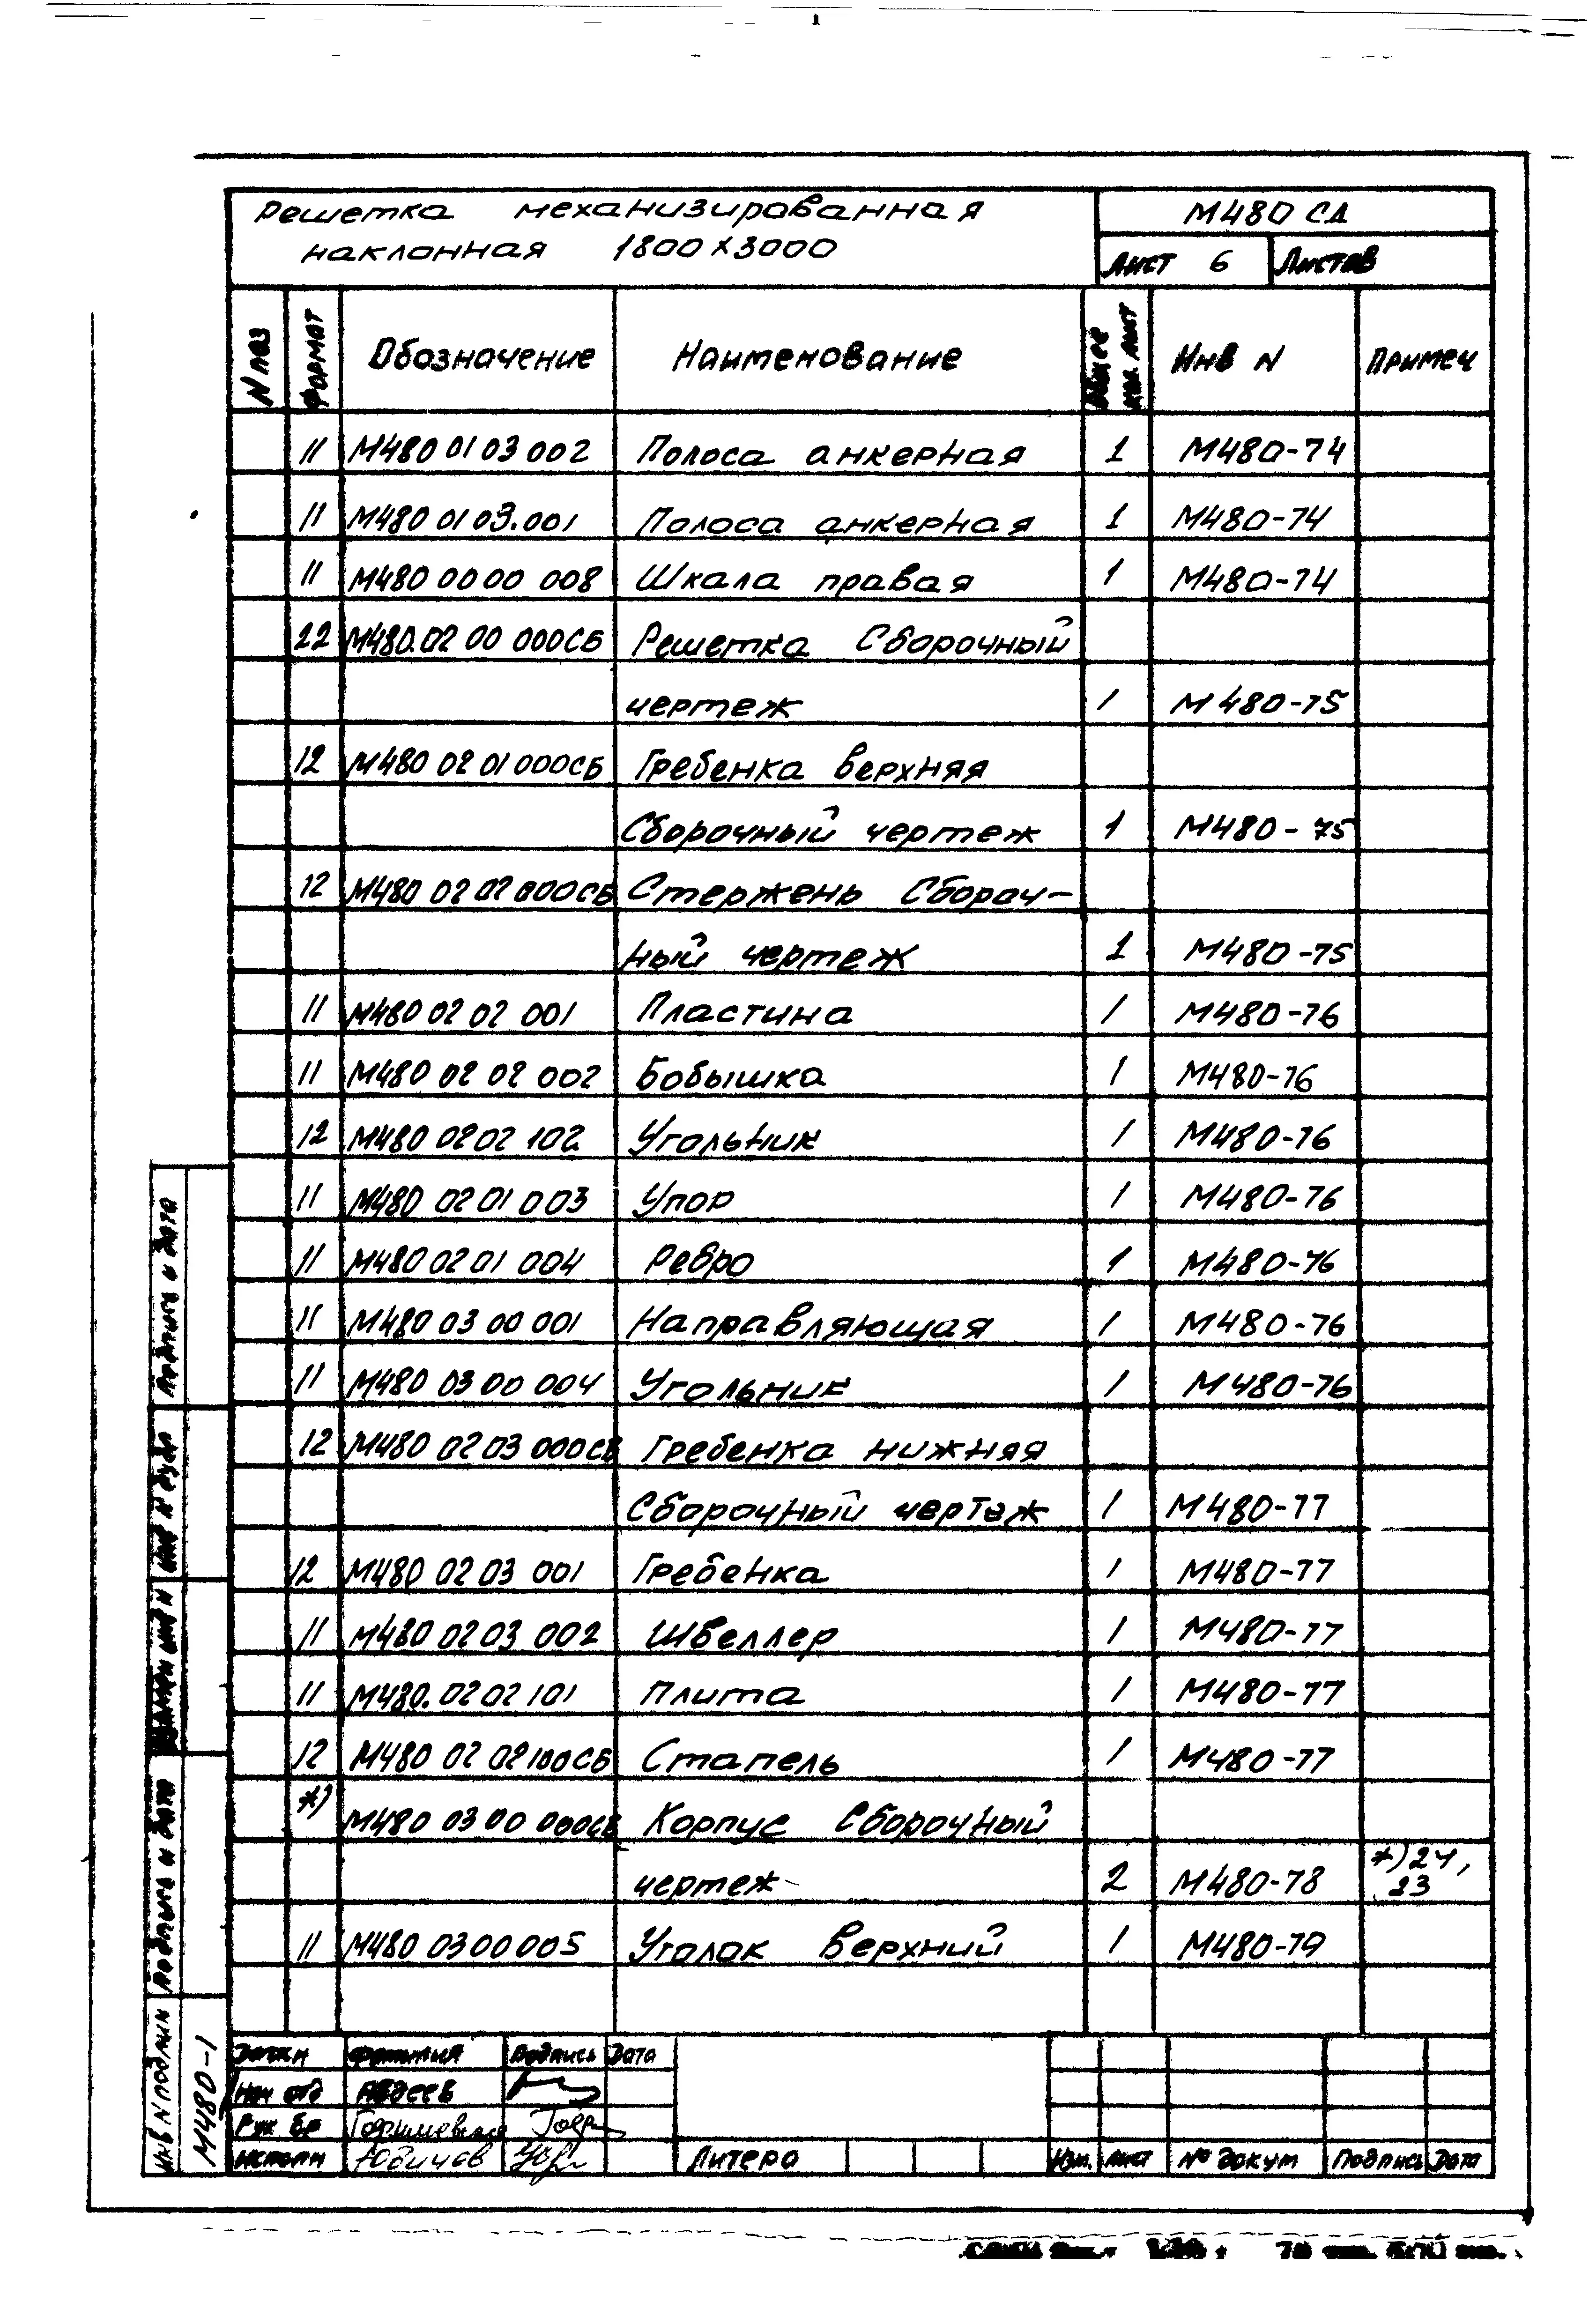 Решетка механизированная
наклонная 1800х3000
М480 СД
Лист 6 Листов
N поз Формат Обозначение Наименование Общее кол. лист Инв N Примеч
11 М480 01 03 002 Полоса анкерная 1 М480-74
11 М480 01 03.001 Полоса анкерная 1 М480-74
11 М480 00 00 008 Шкала правая 1 М480-74
22 М480.02 00 000СБ Решетка Сборочный
чертеж 1 М480-75
12 М480 02 01 000СБ Гребенка верхняя
Сборочный чертеж 1 М480-75
12 М480 02 02 000СБ Стержень Сбороч-
ный чертеж 1 М480-75
11 М480 02 02 001 Пластина 1 М480-76
11 М480 02 02 002 Бобышка 1 М480-76
12 М480 02 02 102 Угольник 1 М480-76
11 М480 02 01 003 Упор 1 М480-76
11 М480 02 01 004 Ребро 1 М480-76
11 М480 03 00 001 Направляющая 1 М480-76
11 М480 03 00 004 Угольник 1 М480-76
12 М480 02 03 000СБ Гребенка нижняя
Сборочный чертеж 1 М480-77
12 М480 02 03 001 Гребенка 1 М480-77
11 М480 02 03 002 Швеллер 1 М480-77
11 М480. 02 02 101 Плита 1 М480-77
12 М480 02 02 100СБ Стапель 1 М480-77
*) М480 03 00 000СБ Корпус Сборочный
чертеж 2 М480-78 *) 24, 23
11 М480 03 00 005 Уголок верхний 1 М480-79
Фамилия Подпись Дата
Нач отд Авдеев
Рук бр
Исполн Юдичев
Литера
Изм. Лист № докум Подпись Дата
Подпись и дата
Инв N дубл
Взамен инв N
Подпись и дата
Инв N подлин
М480-1